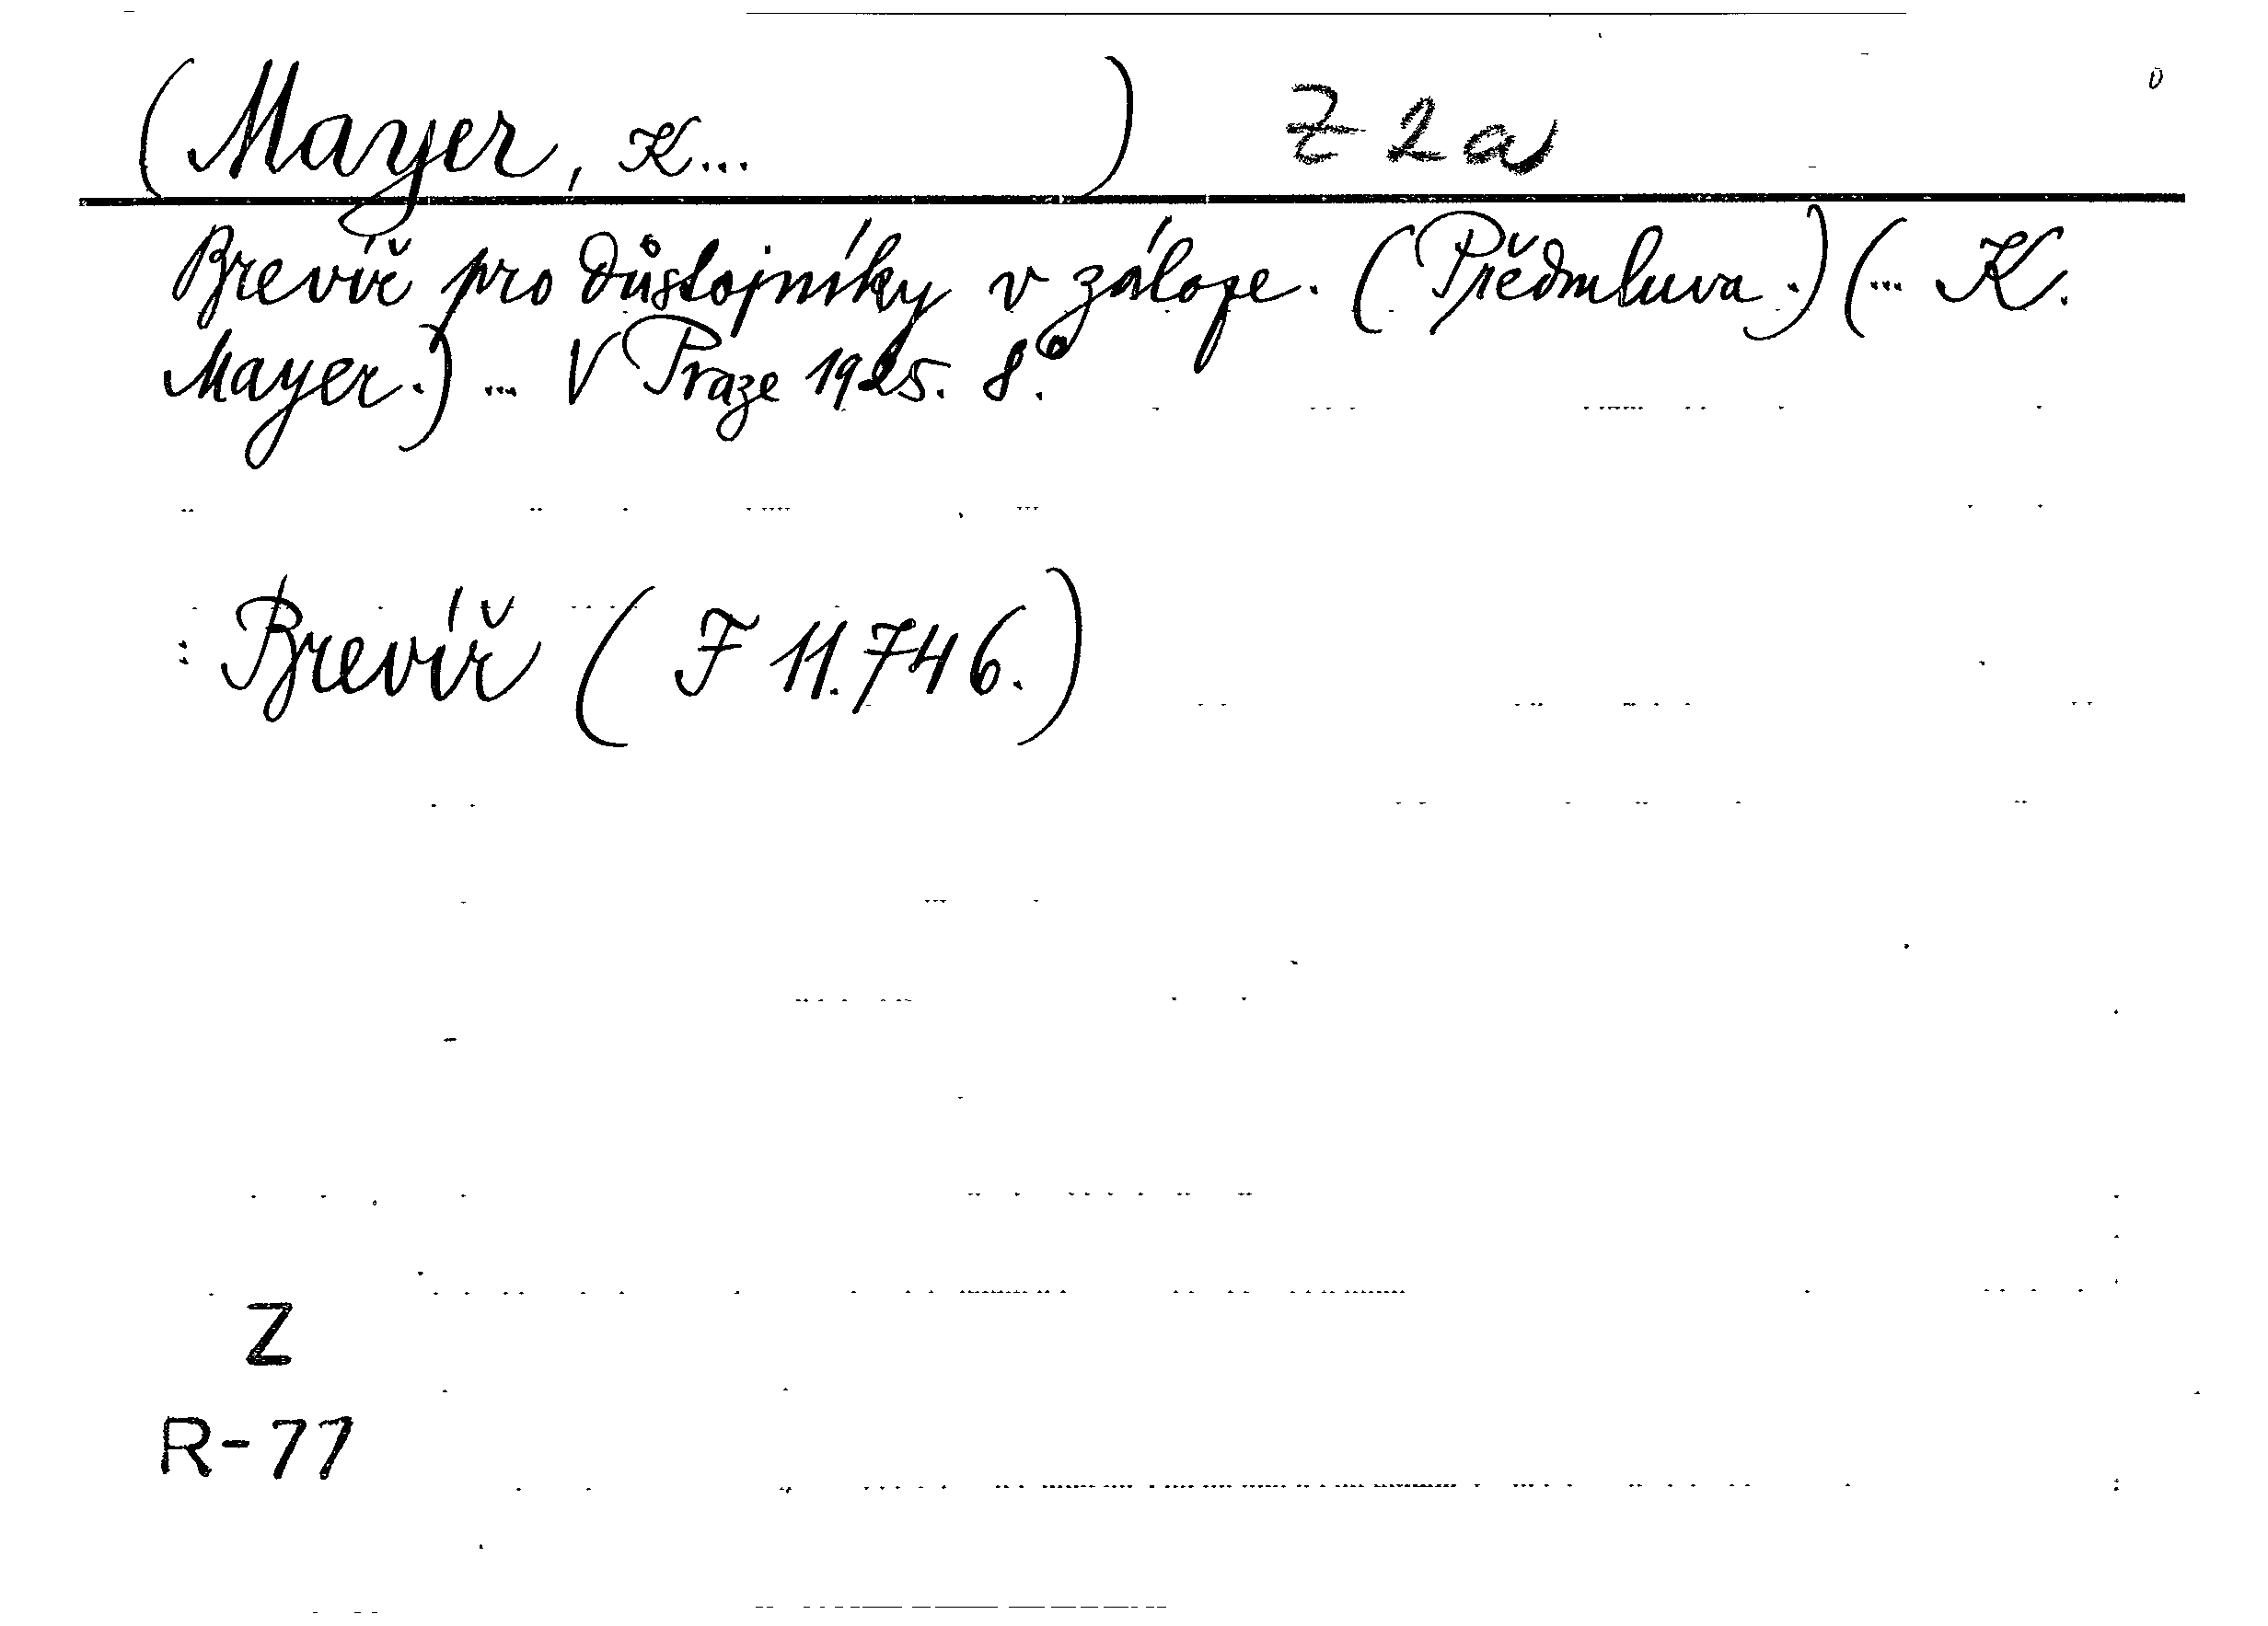 (Mayer, K... ) Z 2a
Brevíř pro důstojníky v záloze. (Předmluva.) (... K.
Mayer.) ... V Praze 1925. 8.°
: Brevíř (F 11.746.)
Z
R-77